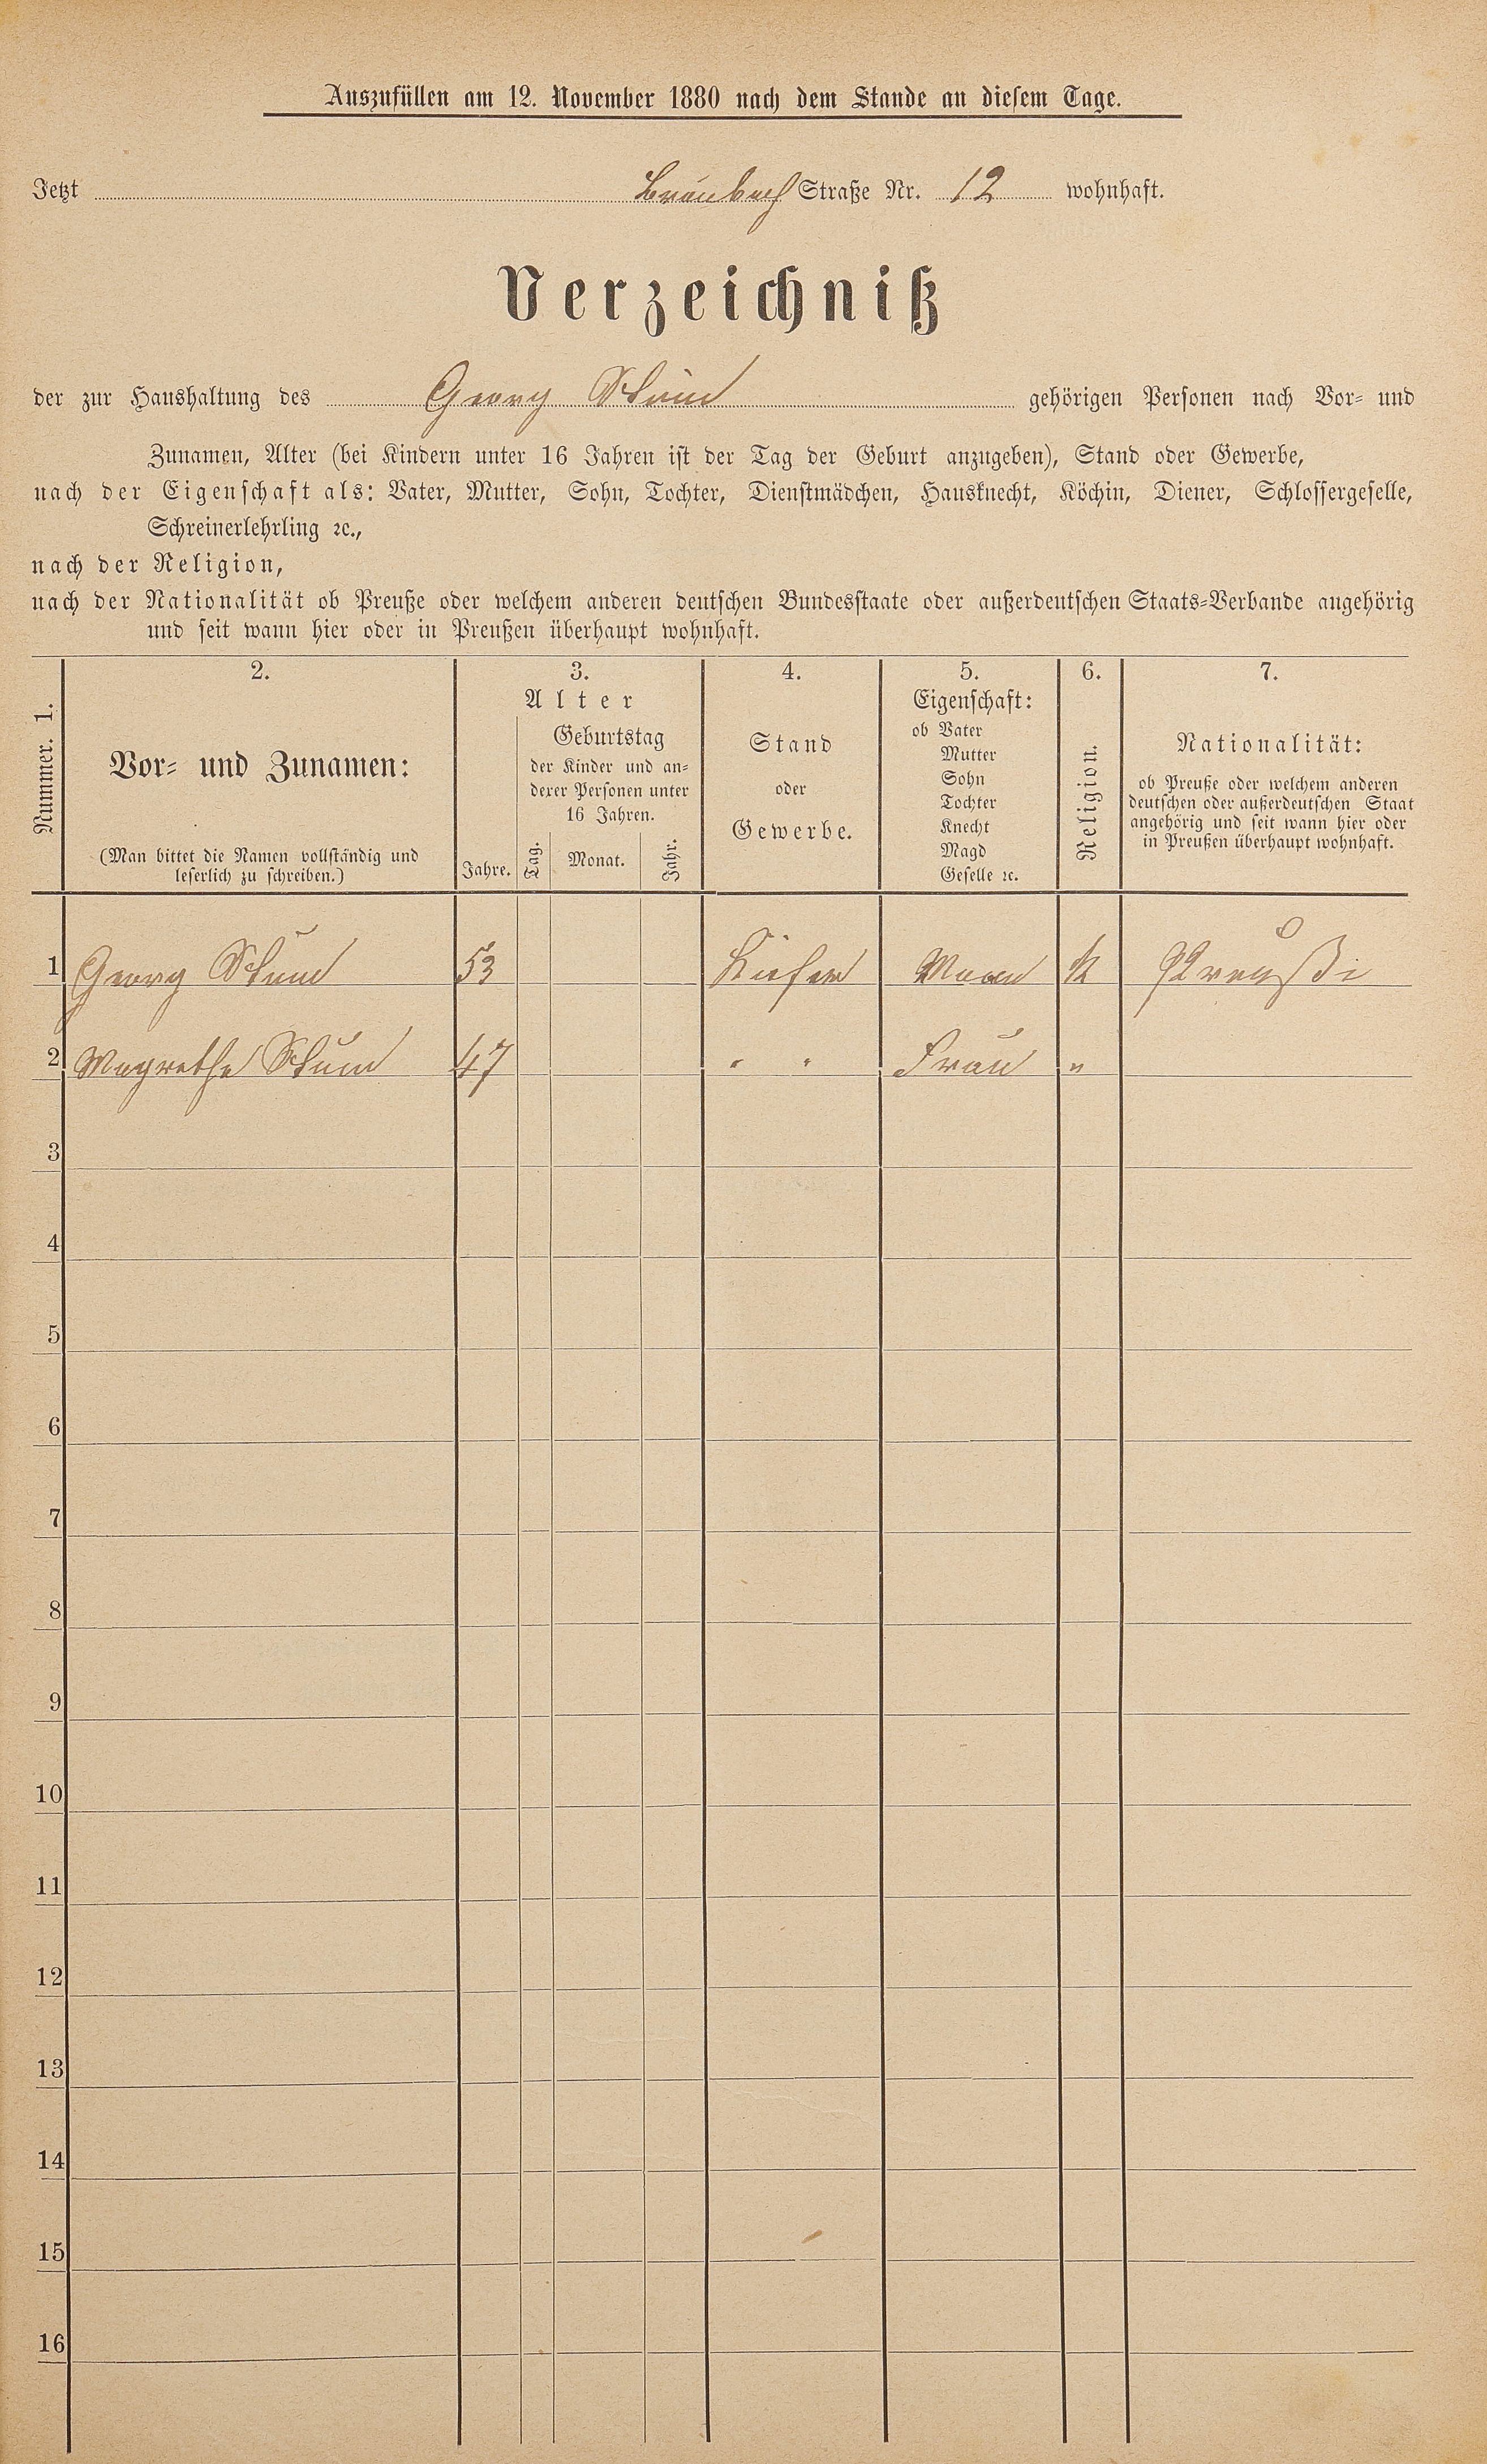 Auszufüllen am 12. November 1880 nach dem Stande an diesem Tage.
Jetzt Braubach Straße Nr. 12 wohnhaft.
Verzeichniß
der zur Haushaltung des Georg gehörigen Personen nach Vor- und
Zunamen, Alter (bei Kindern unter 16 Jahren ist der Tag der Geburt anzugeben), Stand oder Gewerbe,
nach der Eigenschaft als: Vater, Mutter, Sohn, Tochter, Dienstmädchen, Hausknecht, Köchin, Diener, Schlossergeselle,
Schreinerlehrling ꝛc.,
nach der Religion,
nach der Nationalität ob Preuße oder welchem anderen deutschen Bundesstaate oder außerdeutschen Staats-Verbande angehörig
und seit wann hier oder in Preußen überhaupt wohnhaft.
Nummer. 1.
2.
Vor- und Zunamen:
(Man bittet die Namen vollständig und
leserlich zu schreiben.)
3.
Alter
Jahre.
Geburtstag
der Kinder und an-
derer Personen unter
16 Jahren.
Tag. Monat. Jahr.
4.
Stand
oder
Gewerbe.
5.
Eigenschaft:
ob Vater
Mutter
Sohn
Tochter
Knecht
Magd
Geselle ꝛc.
6.
Religion.
7.
Nationalität:
ob Preuße oder welchem anderen
deutschen oder außerdeutschen Staat
angehörig und seit wann hier oder
in Preußen überhaupt wohnhaft.
1 Georg 53 Mann K
2 Magrethe 47 " " Frau "
3
4
5
6
7
8
9
10
11
12
13
14
15
16